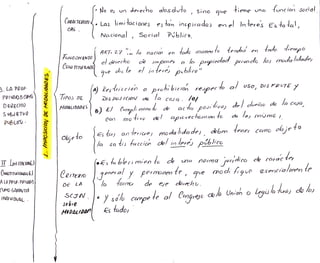 · No es un derecho absoluto, sino que tiene una función social
CARACTERÍSTI-
CAS.
· Las limitaciones están inspiradas en el Interés Estatal,
Nacional, Social Pública.
FUNDAMENTO
CONSTITUCIONAL
ART. 27 "... la nación en todo momento tendrá en todo tiempo
el derecho de imponer a la propiedad privada las modalidades
que dicte el interés público"
I. LA PROP
PRIVADA COMO
DERECHO
SUBJETIVO
PÚBLICO.
1. IMPOSICIÓN DE MODALIDADES.
TIPOS DE
MODALIDADES
a) Restricción o prohibición respecto al USO, DISFRUTE y
DISPOSICIÓN de la cosa.
b) El cumplimiento de actos positivos del dueño de la cosa,
con motivo del aprovechamiento de las mismas.
Objeto
Estas anteriores modalidades, deben tener como objeto
la satisfacción del interés público
II LIMITACIONES
CONSTITUCIONALES
A LA PROP. PRIVADA
COMO GARANTÍA
INDIVIDUAL.
CRITERIO
DE LA
SCJN
sobre
MODALIDAD
• Establecimiento de una norma jurídica de carácter
general y permanente, que modifique esencialmente
la forma de ese derecho.
• Y sólo compete al Congreso de la Unión o Legislaturas de los
Estados